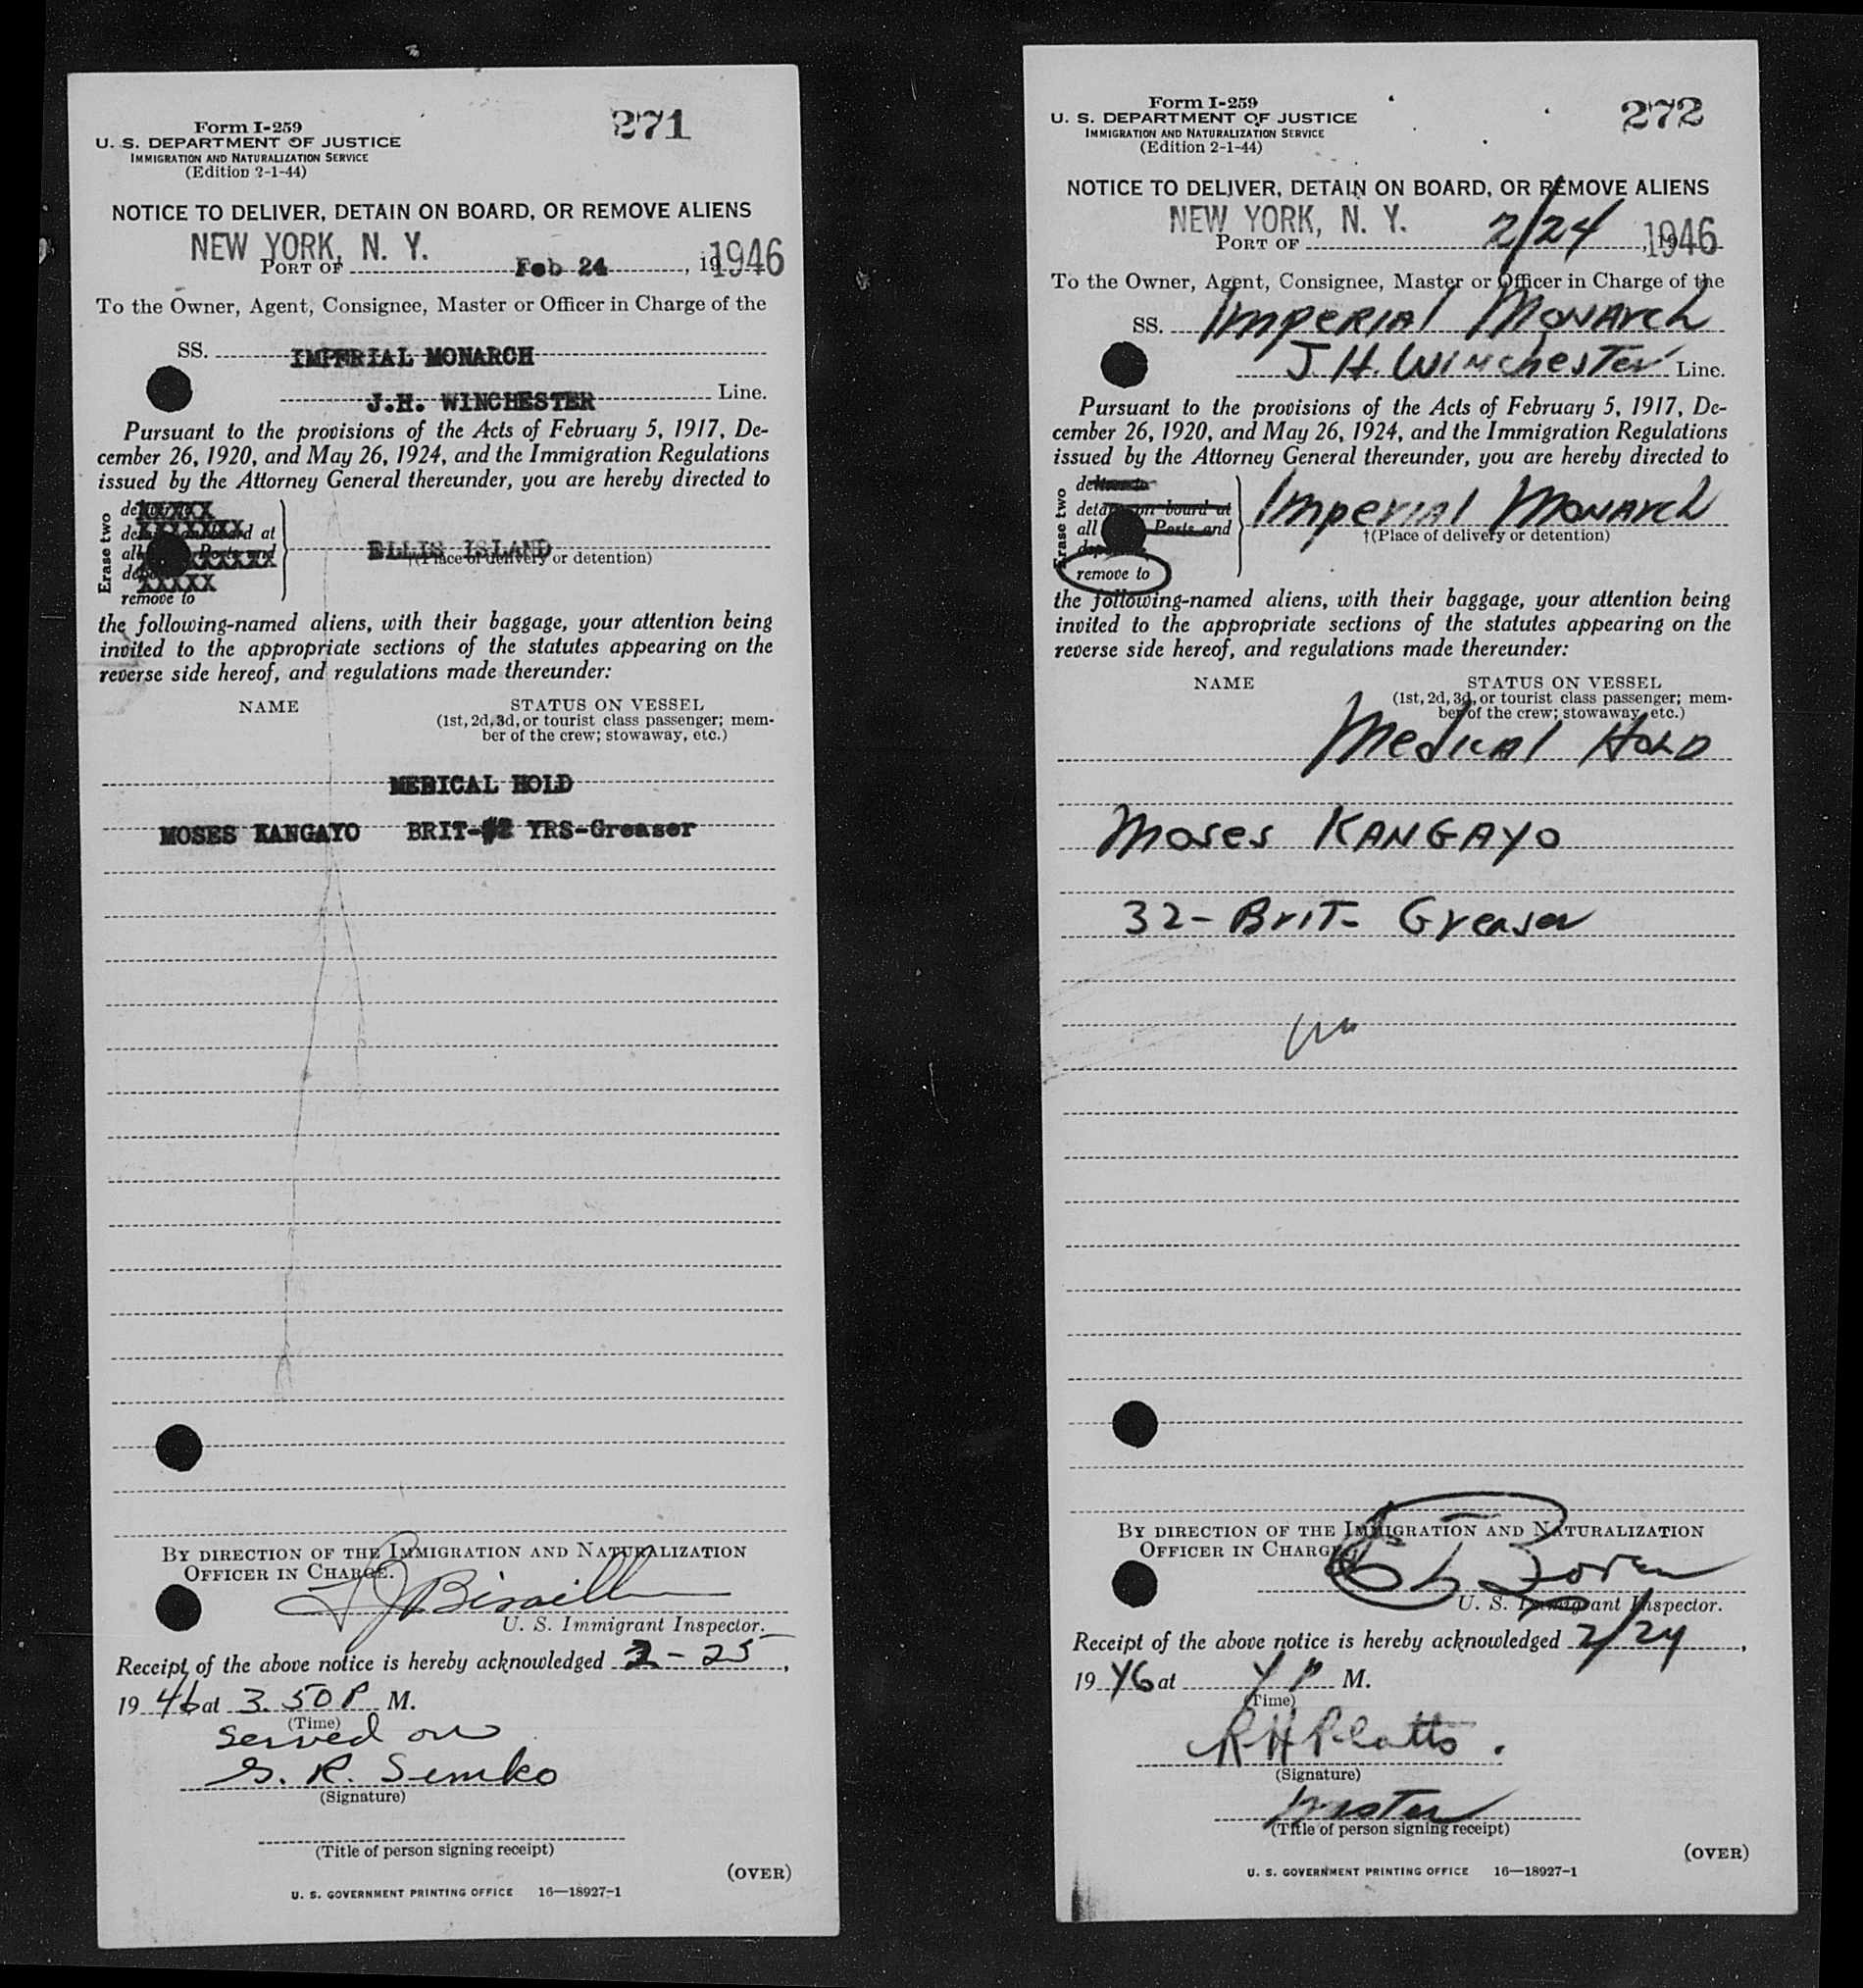 271
Form I-259
U. S. DEPARTMENT OF JUSTICE
IMMIGRATION AND NATURALIZATION SERVICE
(Edition 2-1-44)
NOTICE TO DELIVER, DETAIN ON BOARD, OR REMOVE ALIENS
NEW YORK, N. Y.
PORT OF Feb 24, 19 1946
To the Owner, Agent, Consignee, Master or Officer in Charge of the
SS. IMPERIAL MONARCH
J.H. WINCHESTER Line.
Pursuant to the provisions of the Acts of February 5, 1917, De-
cember 26, 1920, and May 26, 1924, and the Immigration Regulations
issued by the Attorney General thereunder, you are hereby directed to
Erase two
at
all Ports and
remove to
ELLIS ISLAND
†(Place of delivery or detention)
the following-named aliens, with their baggage, your attention being
invited to the appropriate sections of the statutes appearing on the
reverse side hereof, and regulations made thereunder:
NAME STATUS ON VESSEL
(1st, 2d, 3d, or tourist class passenger; mem-
ber of the crew; stowaway, etc.)
MEDICAL HOLD
MOSES KANGAYO BRIT- YRS-Greaser
BY DIRECTION OF THE IMMIGRATION AND NATURALIZATION
OFFICER IN CHARGE.
U. S. Immigrant Inspector.
Receipt of the above notice is hereby acknowledged 2-25,
19 46 at 3.50 P M.
(Time)
Served on
G. R. Semko
(Signature)
(Title of person signing receipt)
(OVER)
U. S. GOVERNMENT PRINTING OFFICE 16—18927-1
272
Form I-259
U. S. DEPARTMENT OF JUSTICE
IMMIGRATION AND NATURALIZATION SERVICE
(Edition 2-1-44)
NOTICE TO DELIVER, DETAIN ON BOARD, OR REMOVE ALIENS
NEW YORK, N. Y.
PORT OF 2/24, 19 1946
To the Owner, Agent, Consignee, Master or Officer in Charge of the
SS. Imperial Monarch
J. H. Winchester Line.
Pursuant to the provisions of the Acts of February 5, 1917, De-
cember 26, 1920, and May 26, 1924, and the Immigration Regulations
issued by the Attorney General thereunder, you are hereby directed to
Erase two
on board at
all Ports and
remove to
Imperial Monarch
†(Place of delivery or detention)
the following-named aliens, with their baggage, your attention being
invited to the appropriate sections of the statutes appearing on the
reverse side hereof, and regulations made thereunder:
NAME STATUS ON VESSEL
(1st, 2d, 3d, or tourist class passenger; mem-
ber of the crew; stowaway, etc.)
Medical Hold
Moses KANGAYO
32- Brit- Greaser
BY DIRECTION OF THE IMMIGRATION AND NATURALIZATION
OFFICER IN CHARGE.
U. S. Immigrant Inspector.
Receipt of the above notice is hereby acknowledged 2/24,
19 46 at 4 P M.
(Time)
R H Platts.
(Signature)
Master
(Title of person signing receipt)
(OVER)
U. S. GOVERNMENT PRINTING OFFICE 16—18927-1